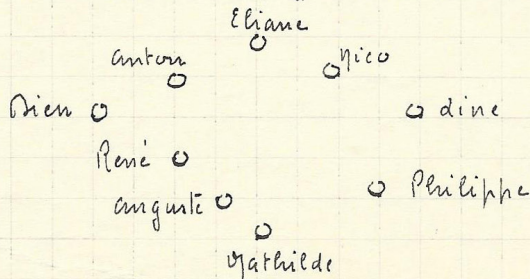 Eliane
anton
Nico
Bien
dine
René
Philippe
auguste
Mathilde